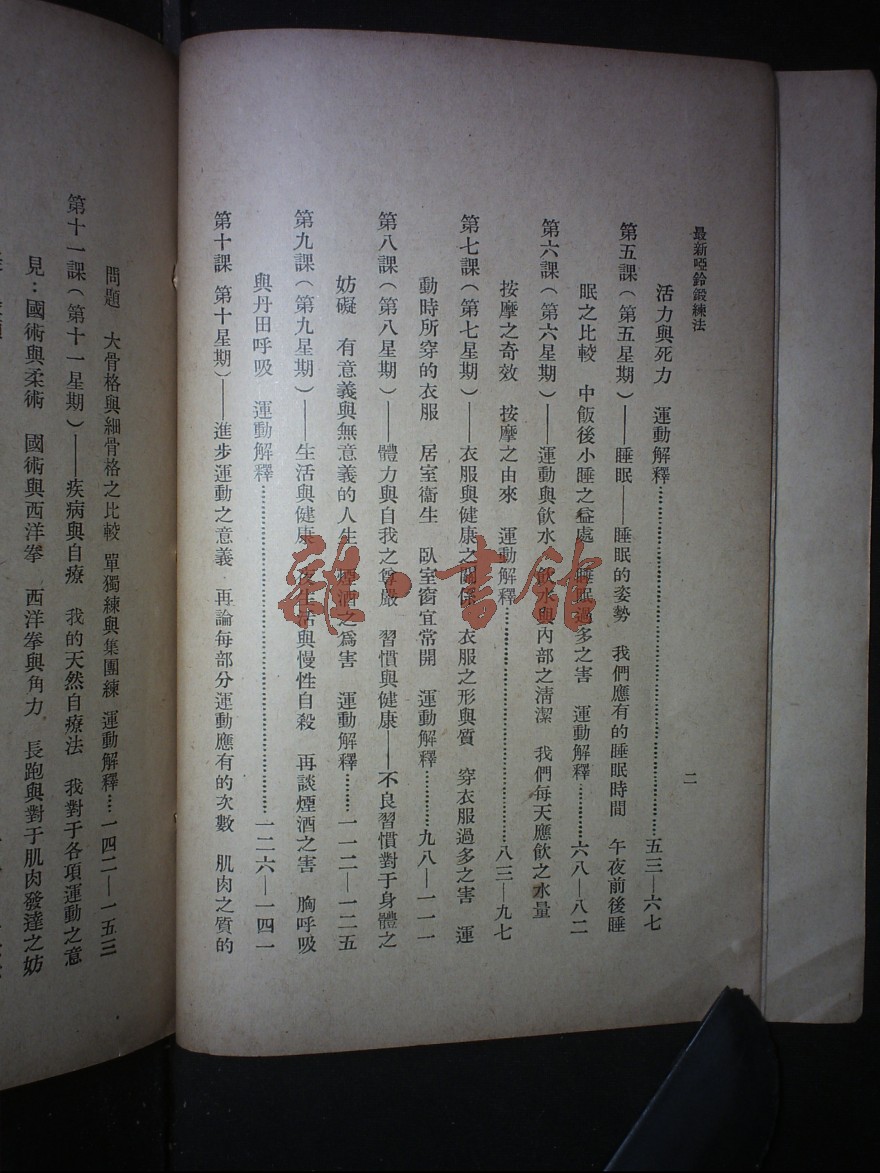 最新啞鈴鍛練法
二
活力與死力　運動解釋……五三—六七
第五課（第五星期）——睡眠——睡眠的姿勢　我們應有的睡眠時間　午夜前後睡
眠之比較　中飯後小睡之益處　睡眠過多之害　運動解釋……六八—八二
第六課（第六星期）——運動與飲水　飲水與內部之清潔　我們每天應飲之水量
按摩之奇效　按摩之由來　運動解釋……八三—九七
第七課（第七星期）——衣服與健康之關係　衣服之形與質　穿衣服過多之害　運
動時所穿的衣服　居室衞生　臥室窗宜常開　運動解釋……九八—一一一
第八課（第八星期）——體力與自我之尊嚴　習慣與健康——不良習慣對于身體之
妨礙　有意義與無意義的人生　煙酒之爲害　運動解釋……一一二—一二五
第九課（第九星期）——生活與健康　夜生活與慢性自殺　再談煙酒之害　胸呼吸
與丹田呼吸　運動解釋……一二六—一四一
第十課　第十星期）——進步運動之意義　再論每部分運動應有的次數　肌肉之質的
問題　大骨格與細骨格之比較　單獨練與集團練　運動解釋…一四二—一五三
第十一課（第十一星期）——疾病與自療　我的天然自療法　我對于各項運動之意
見：國術與柔術　國術與西洋拳　西洋拳與角力　長跑與對于肌肉發達之妨
雜·書館